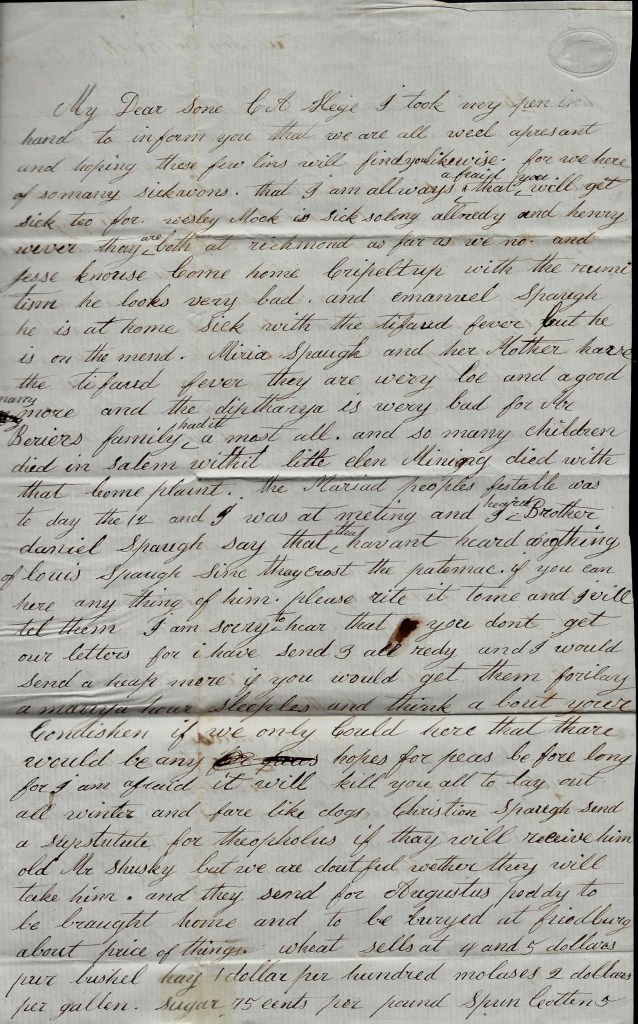 My Dear Sone C A Hege I took my pen in
hand to inform you that we are all weel apresant
and hoping these few lins will find you likewise. for we here
of somany sickwons. that I am allways afraid that you will get
sick too for wesley Mock is sick solong allredy and henry
wever thay are both at richmond as far as we no. and
Jesse knouse Come home Cripeltup with the rumi
tism he looks very bad. and emanuel Spaugh
he is at home sick with the tifaud fever but he
is on the mend. Miria Spaugh and her Mother have
the tifaud fever they are wery loe and a good
many more and the diptharya is wery bad for Mr
Beriers family had it a most all. and so many children
died in Salem withit little elen Mining died with
that Complaint. the Mariad peoples festable was
to day the 12 and I was at meeting and I heard Brother
daniel Spaugh say that thay havant heard anything
of louis Spaugh sine thay crost the patomac. if you can
here any thing of him. please rite it tome and I will
tel them I am sorry to hear that you dont get
our letters for i have send 3 all redy and I would
send a heap more if you would get them for i lay
a maniya hour Sleeples and think a bout your
Condishen if we only Could here that thare
would be any hopes for peas be fore long
for I am afraid it will kill you all to lay out
all winter and fare like dogs Christion Spaugh send
a supstutute for theopholus if thay will receive him
old Mr Shusky but we are doutful wether they will
take him. and they send for Augustus poddy to
be braught home and to be buryed at friedburg
about price of things. wheat sells at 4 and 5 dollars
pur bushel hay 1 dollar per hundred molases 2 dollars
per gallen. sugar 75 cents per pound Spun Cotten 5